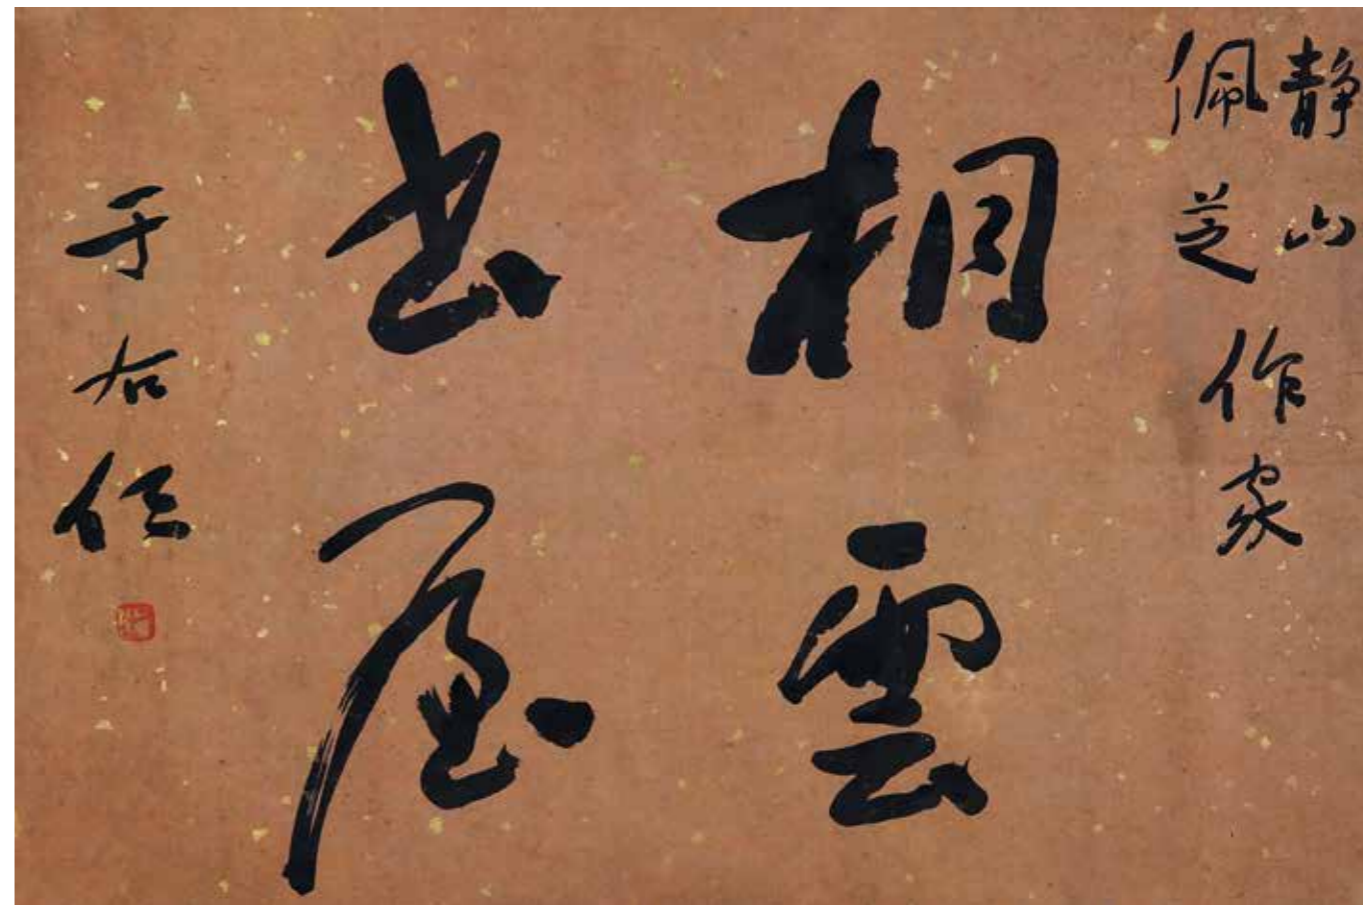 静山
佩芝
作家
桐雲
書屋
于右任